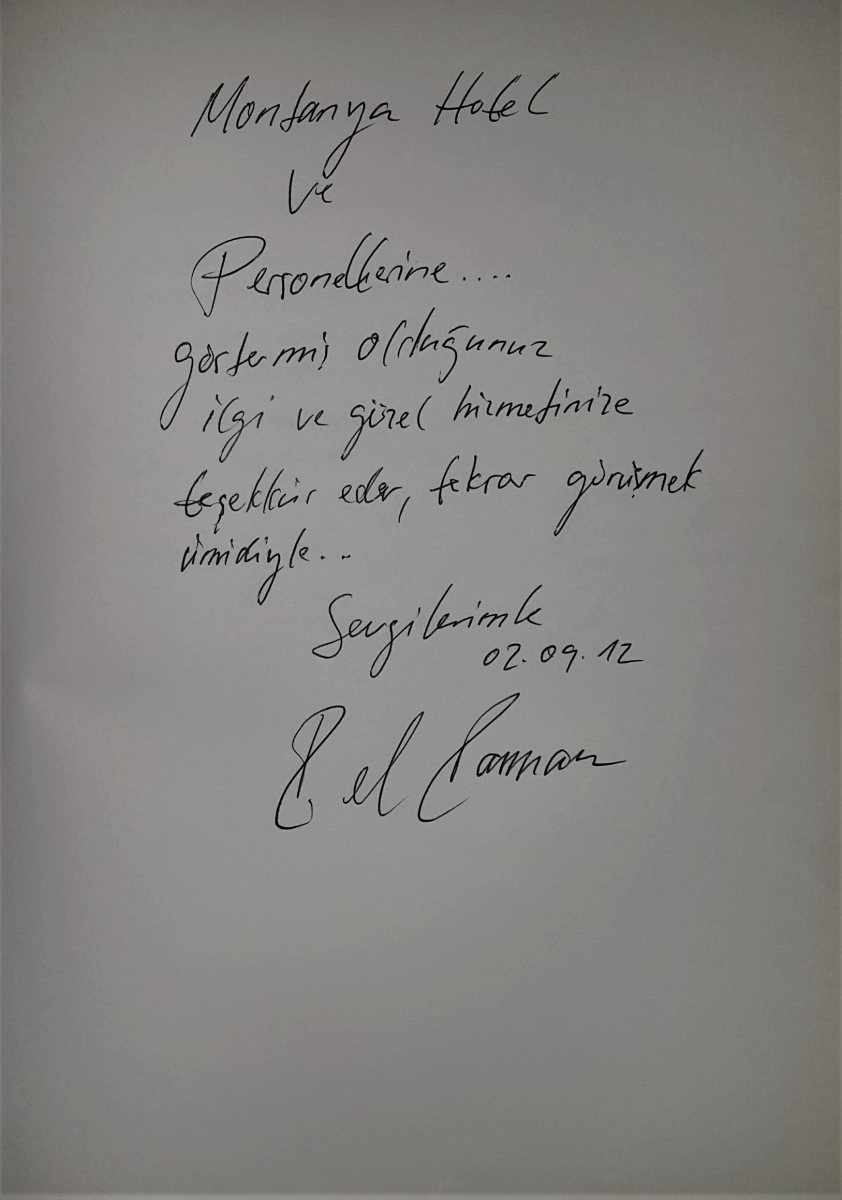 Montanya Hotel
ve
Personellerine....
göstermiş olduğunuz
ilgi ve güzel hizmetinize
teşekkür eder, tekrar görüşmek
ümidiyle...
Sevgilerimle
02.09.12